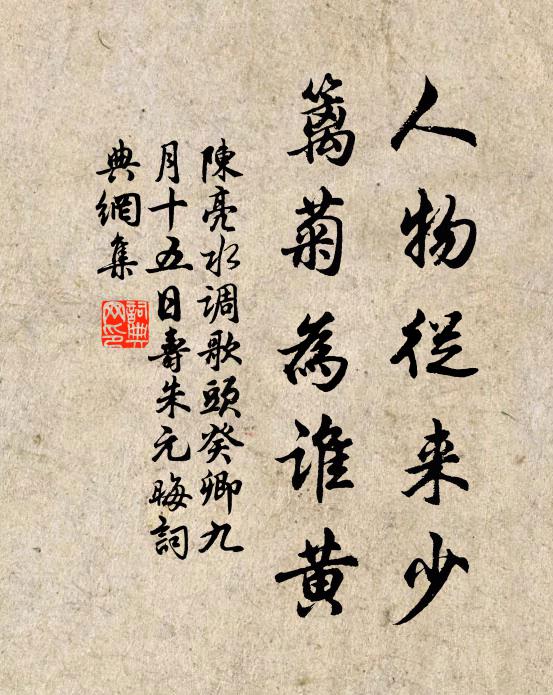 人物從来少
篱菊為誰黄
陳亮水调歌頭癸卿九
月十五日壽朱元晦詞
典網集
詞典網印